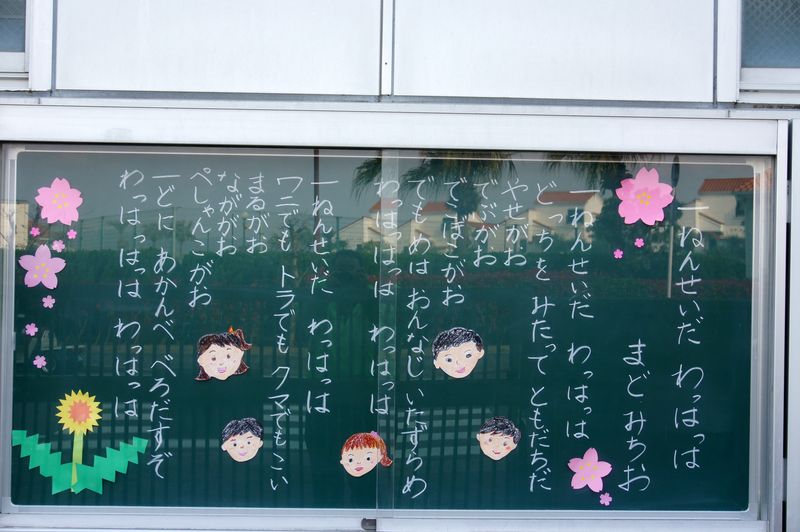 一ねんせいだ わっはっは
まど みちお
一ねんせいだ わっはっは
どっちを みたって ともだちだ
やせがお
でぶがお
でこぼこがお
でも めは おんなじ いたずらめ
わっはっはっは わっはっは
一ねんせいだ わっはっは
ワニでも トラでも クマでも こい
まるがお
なががお
ぺしゃんこがお
一どに あかんべ べろだすぞ
わっはっはっは わっはっは